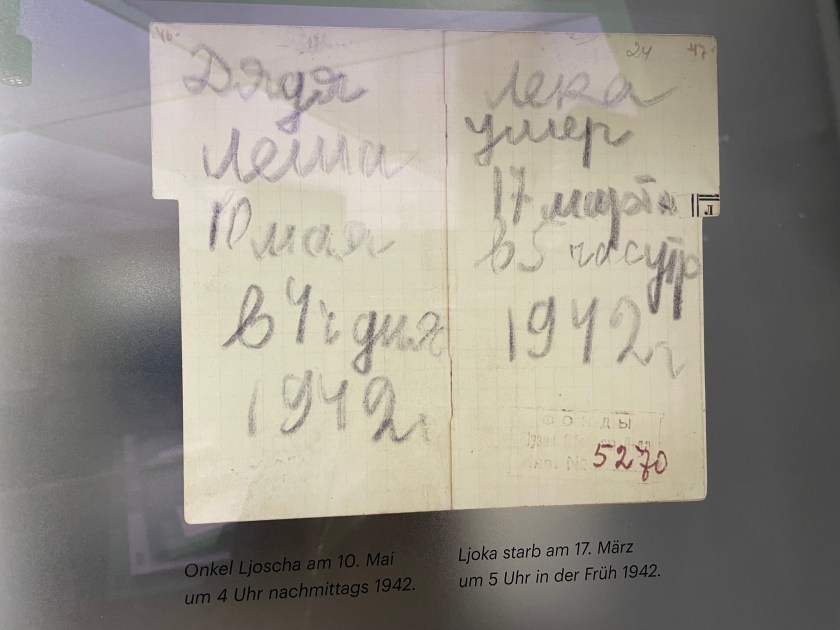 46.
Дядя
Леша
10 мая
в 4 ч дня
1942 г
24 47
Лека
умер
17 марта
в 5 час утр
1942 г
Л
ФОНДЫ
5270
Onkel Ljoscha am 10. Mai
um 4 Uhr nachmittags 1942.
Ljoka starb am 17. März
um 5 Uhr in der Früh 1942.